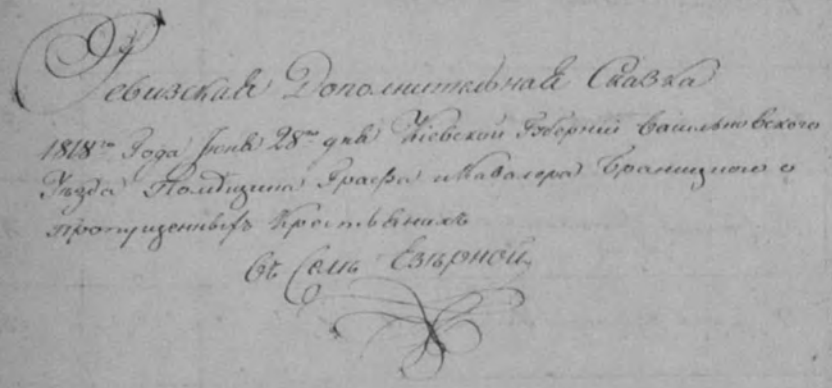 Ревизская Дополнительная Сказка
1818го Года Июня 28го дня Киевской Губерний Васильковского
Уезда Помещика Графа и Кавалера Браницкого о
пропущенныхъ Крестьянахъ
Въ Селе Езѣрной